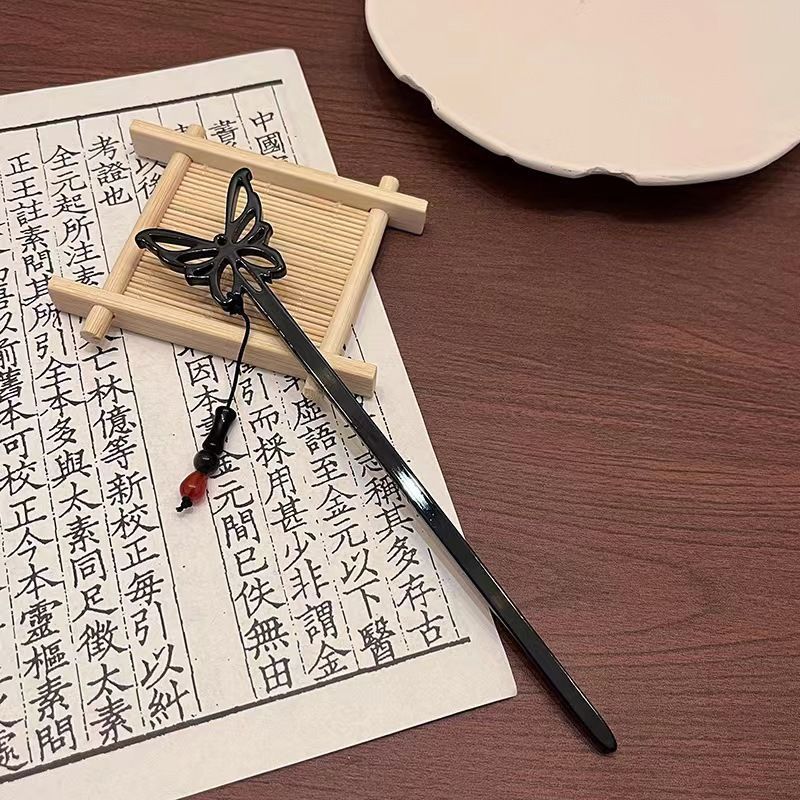 中國
志稱其多存古
虛語至金元以下醫
引而採用甚少非謂金
因本書金元間已佚無由
考證也
全元起所注素亡林億等新校正每引以糾
正王註素問其所引全本多與太素同足徵太素
前舊本可校正今本靈樞素問
處